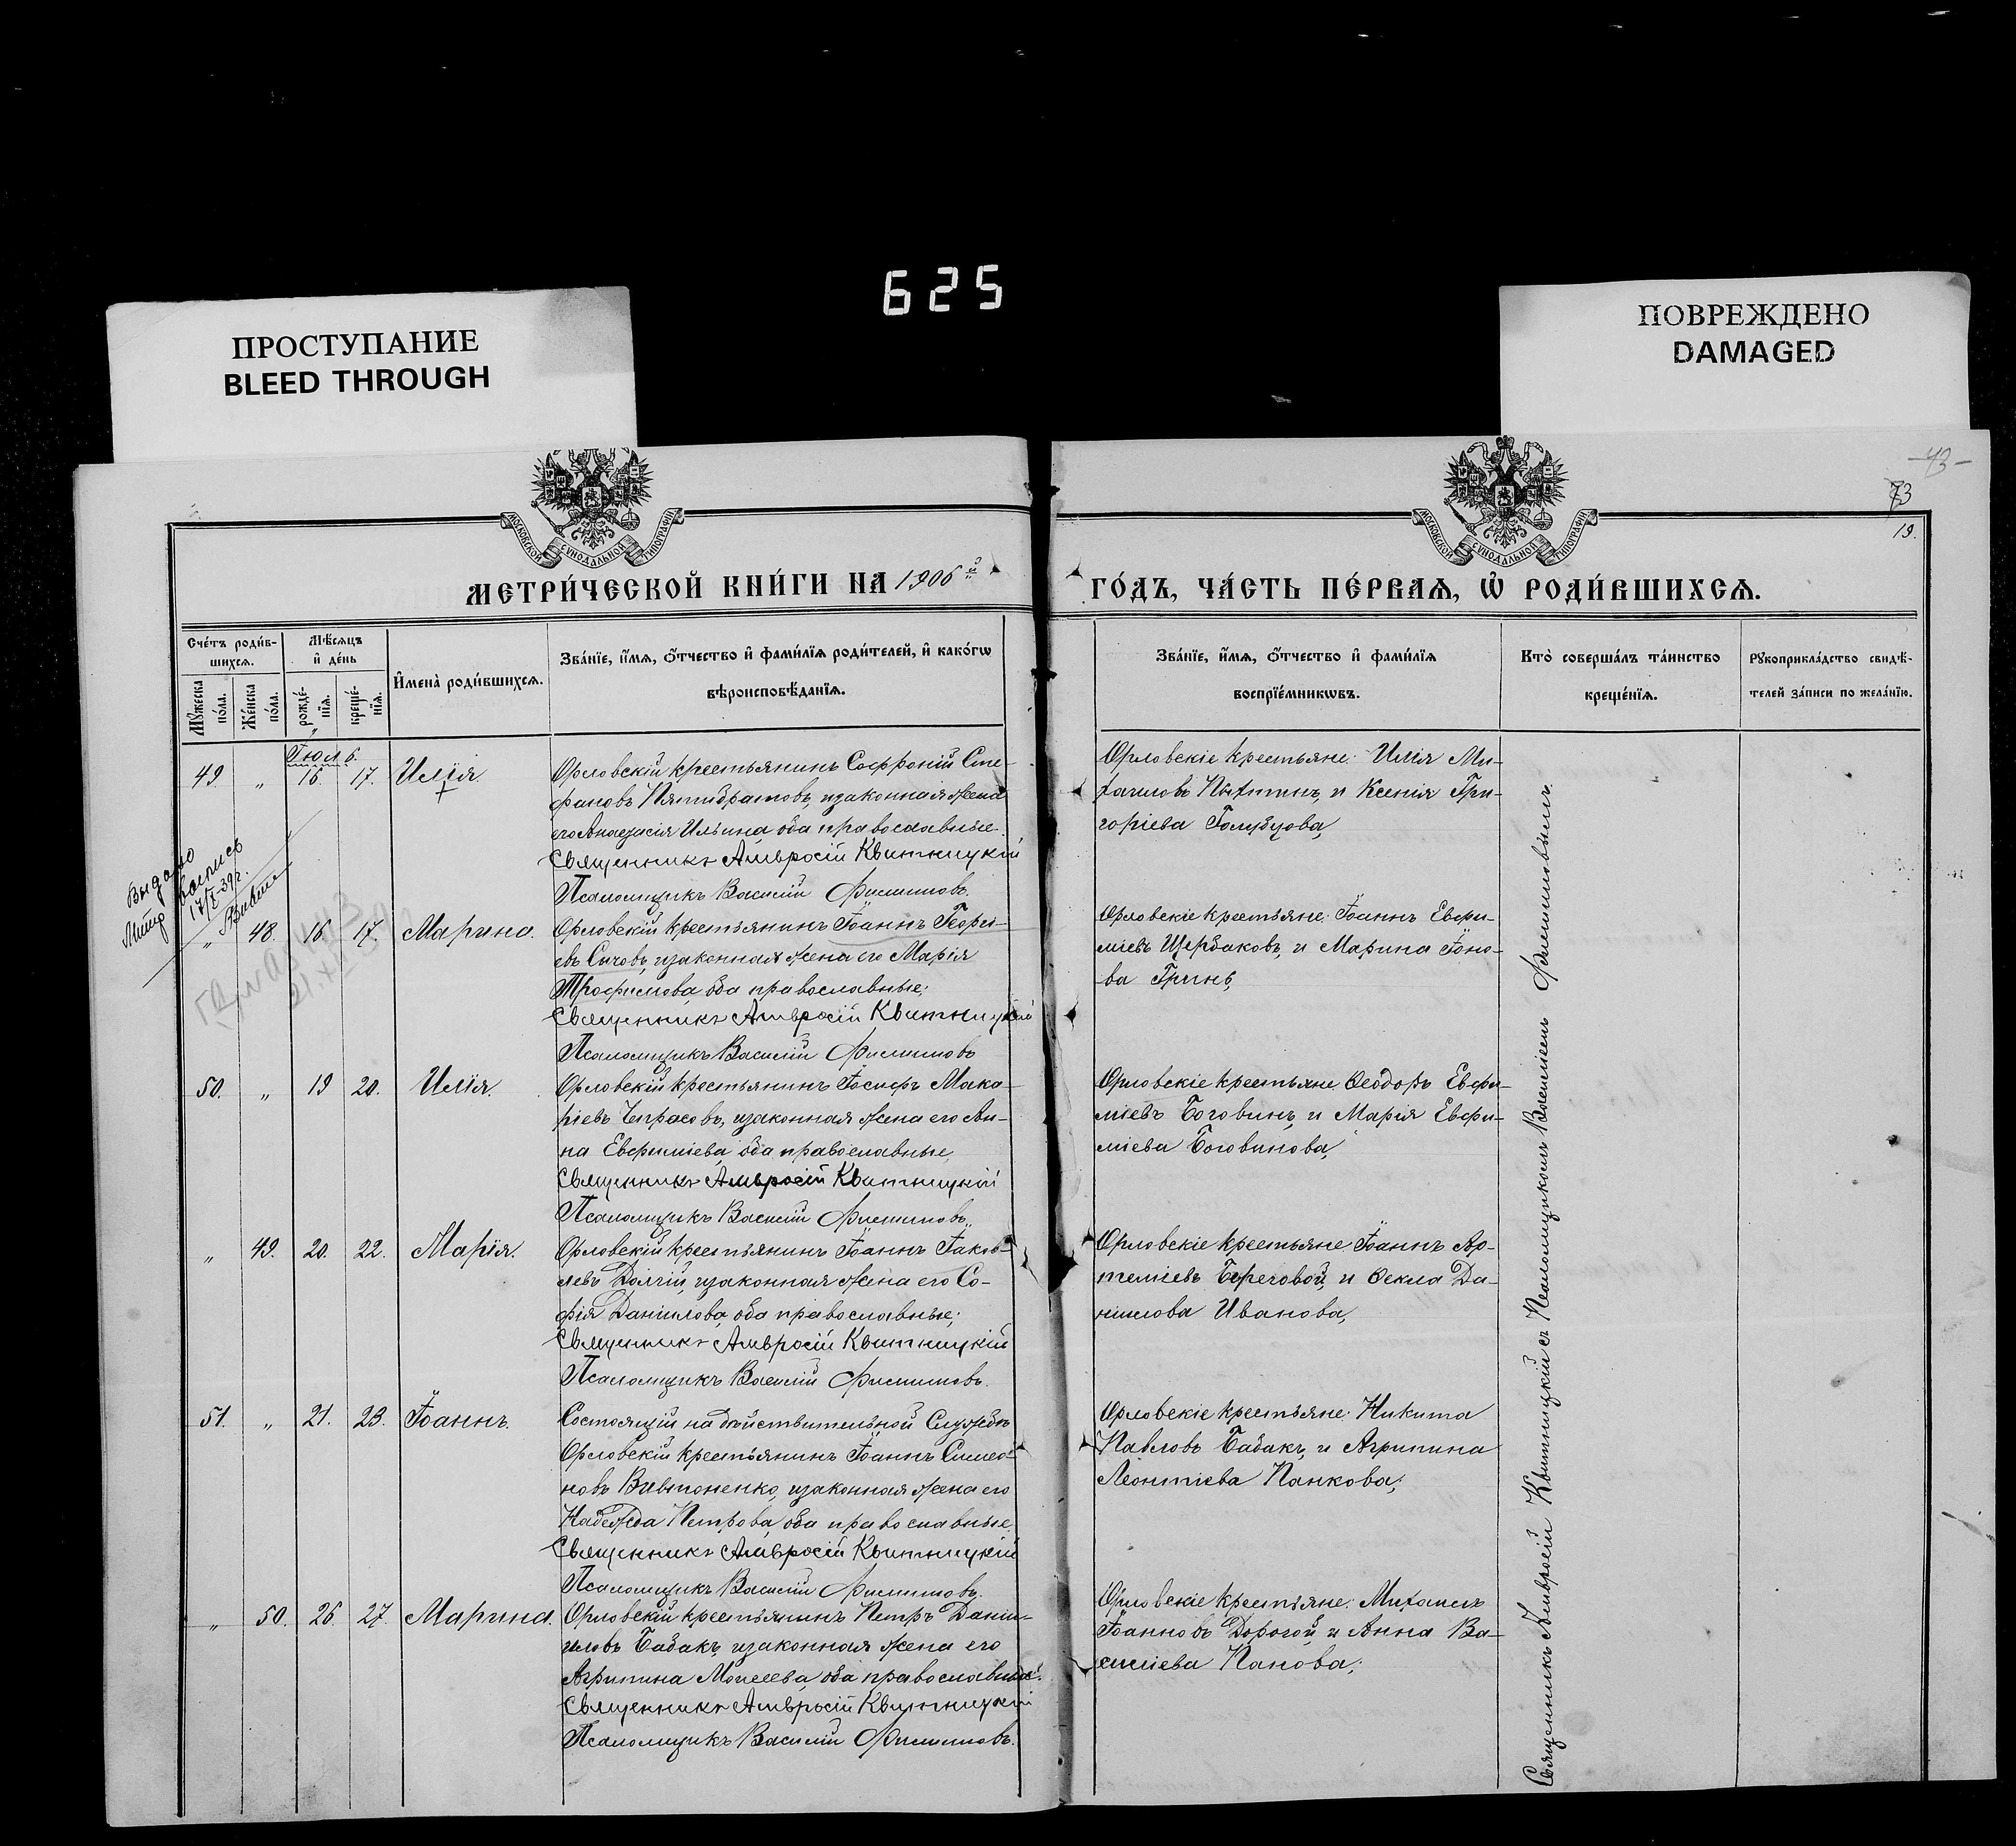 625
ПРОСТУПАНИЕ
BLEED THROUGH
ПОВРЕЖДЕНО
DAMAGED
МОСКОВСКОЙ СѴНОДАЛЬНОЙ ТИПОГРАФІИ
МОСКОВСКОЙ СѴНОДАЛЬНОЙ ТИПОГРАФІИ
73
19.
МЕТРИ́ЧЕСКОЙ КНИ́ГИ НА 1906й
ГО́ДЪ, ЧА́СТЬ ПЕ́РВАѦ, Ѡ҆ РОДИ́ВШИХСѦ.
Сче́тъ роди́в-
шихсѧ.
Мѣ́сѧцъ
и҆ де́нь
Мꙋ́жеска
по́ла.
Же́нска
по́ла.
рожде́-
нїѧ.
креще́-
нїѧ.
И҆мена̀ роди́вшихсѧ.
Зва́нїе, и҆́мѧ, ѻ҆́тчество и҆ фами́лїѧ роди́телей, и҆ како́гѡ
вѣроисповѣ́данїѧ.
Зва́нїе, и҆́мѧ, ѻ҆́тчество и҆ фами́лїѧ
воспрїе́мникѡвъ.
Кто̀ соверша́лъ та́инство
креще́нїѧ.
Рꙋкоприкла́дство свидѣ́-
телей за́писи по жела́нїю.
Іюль.
49. " 16. 17. Илія
Орловскій крестьянинъ Софроній Сте-
фановъ Пятибратовъ, изаконная жена
его Анастасія Ильина, оба православные.
Священникъ Амвросій Квитницкій
Псаломщикъ Василій Филиповъ.
Орловскіе крестьяне: Илія Ми-
хаиловъ Пыхтинъ, и Ксенія Гри-
горіева Голубцова,
Выдано
выпись
17/X-39г.
" 48. 16. 17. Марина.
Орловскій крестьянинъ Іоаннъ Георгі-
евъ Сычовъ, изаконная жена его Марія
Трофимова, оба православные;
Священникъ Амвросій Квитницкій
Псаломщикъ Василій Филиповъ
Орловскіе крестьяне: Іоаннъ Евфи-
міевъ Щербаковъ, и Марина Іоно-
ва Гринь,
50. " 19 20. Илія.
Орловскій крестьянинъ Іосифъ Мака-
ріевъ Чепрасовъ, изаконная жена его Ан-
на Евфиміева, оба православные,
Священникъ Амвросій Квитницкій
Псаломщикъ Василій Филиповъ.
Орловскіе крестьяне Ѳеодоръ Евфи-
міевъ Боговинъ, и Марія Евфи-
міева Боговинова,
" 49. 20. 22. Марія.
Орловскій крестьянинъ Іоаннъ Іаков-
левъ Долгій, изаконная жена его Со-
фія Даніилова, оба православные;
Священникъ Амвросій Квитницкій
Псаломщикъ Василій Филиповъ.
Орловскіе крестьяне Іоаннъ Ар-
теміевъ Береговой, и Ѳекла Да-
ніилова Иванова,
51. " 21. 23. Іоаннъ.
Состоящій на дѣйствительной Службѣ
Орловскій крестьянинъ Іоаннъ Симео-
новъ Вивтоненко, изаконная жена его
Надежда Петрова, оба православные.
Священникъ Амвросій Квитницкій
Псаломщикъ Василій Филиповъ.
Орловскіе крестьяне: Никита
Павловъ Бабакъ, и Агрипина
Леонтіева Панкова;
" 50. 26. 27. Марина.
Орловскій крестьянинъ Петръ Дані-
иловъ Бабакъ, изаконная жена его
Агрипина Моисеева, оба православные.
Священникъ Амвросій Квитницкій
Псаломщикъ Василій Филиповъ.
Орловскіе крестьяне: Михаилъ
Іоанновъ Дорогой, и Анна Ва-
силіева Панова;
Священникъ Амвросій Квитницкій съ Псаломщикомъ Василіемъ Филиповымъ.